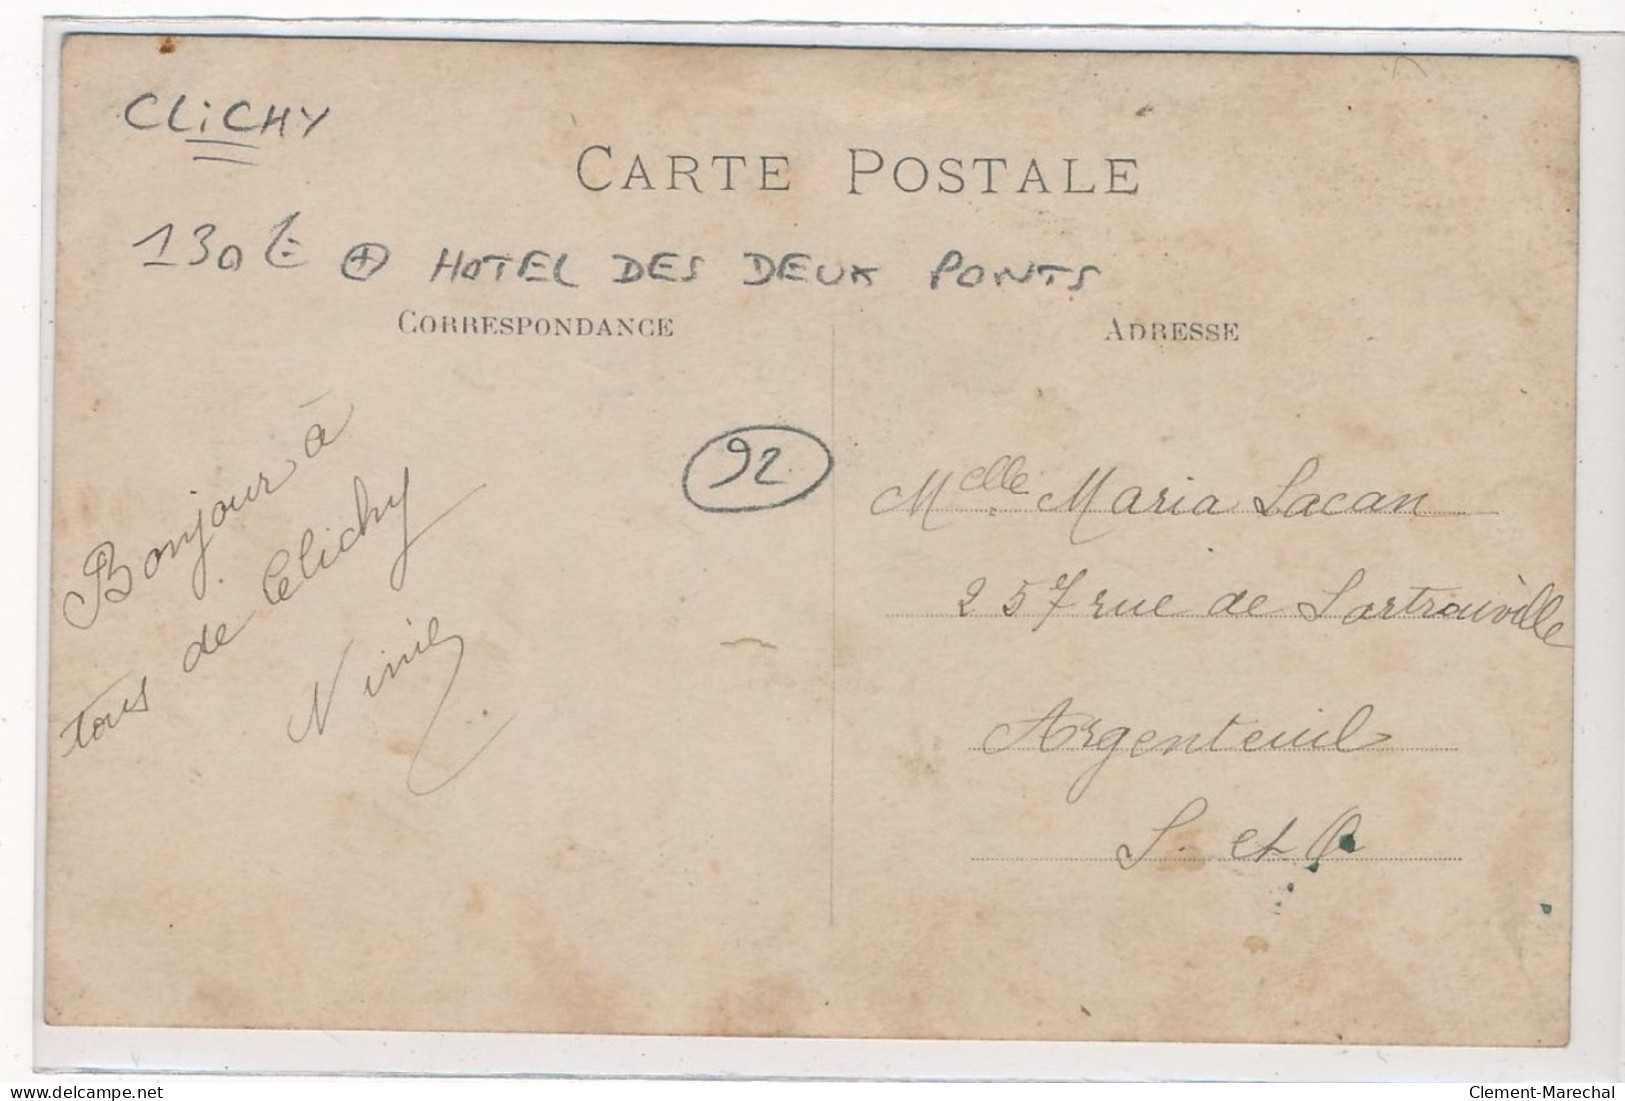 CLiCHY
CARTE POSTALE
130 € ⊕ HOTEL DES DEUX PONTS
CORRESPONDANCE
Bonjour à
tous de Clichy
Ninie
92
ADRESSE
Melle Maria Lacan
257 rue de Sartrouville
Argenteuil
S. et O
www.delcampe.net
Clement-Marechal